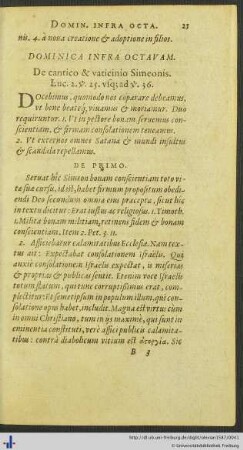 DOMIN. INFRA OCTA. 21
nis. 4. à noua creatione & adoptione in filios.
DOMINICA INFRA OCTAVAM.
De cantico & vaticinio Simeonis.
Luc. 2. v. 25. vsq; ad v. 36.
DOcebimus, quomodo nos comparare debeamus,
vt bene beateq́; viuamus & moriamur. Duo
requiruntur. 1. Vt in pectore bonam seruemus con-
scientiam, & firmam consolationem teneamus.
2. Vt exterior omnes Satanæ & mundi insultus
& scandala repellamus.
DE PRIMO.
Seruat hîc Simeon bonam conscientiam toto vi-
tæ suæ cursu, id est, habet firmum propositum obedi-
endi Deo secundum omnia eius præcepta, sicut hîc
in textu dicitur: Erat iustus ac religiosus. 1. Timoth.
1. Milita bonam militiam, retinens fidem & bonam
conscientiam. Item 2. Pet. 3. 11.
2. Afficiebatur calamitatibus Ecclesiæ. Nam tex-
tus ait: Expectabat consolationem Israelis. Qui
auxiè consolationem Israelis expectat, is miseriis
& propriis & publicis sentit. Etenim voce Israelis
totum statum, qui tunc corruptissimus erat, com-
plectitur: Et semetipsum in populum illum, qui con-
solatione opus habet, includit. Magna est virtus cùm
in omni Christiano, tum in iis maximè, qui sunt in
eminentia constituti, verè affici publicis calamita-
tibus: contrà diabolicum vitium est ἀστοργία. Sic
B 3
http://dl.ub.uni-freiburg.de/diglit/
© Universitätsbibliothek Freiburg